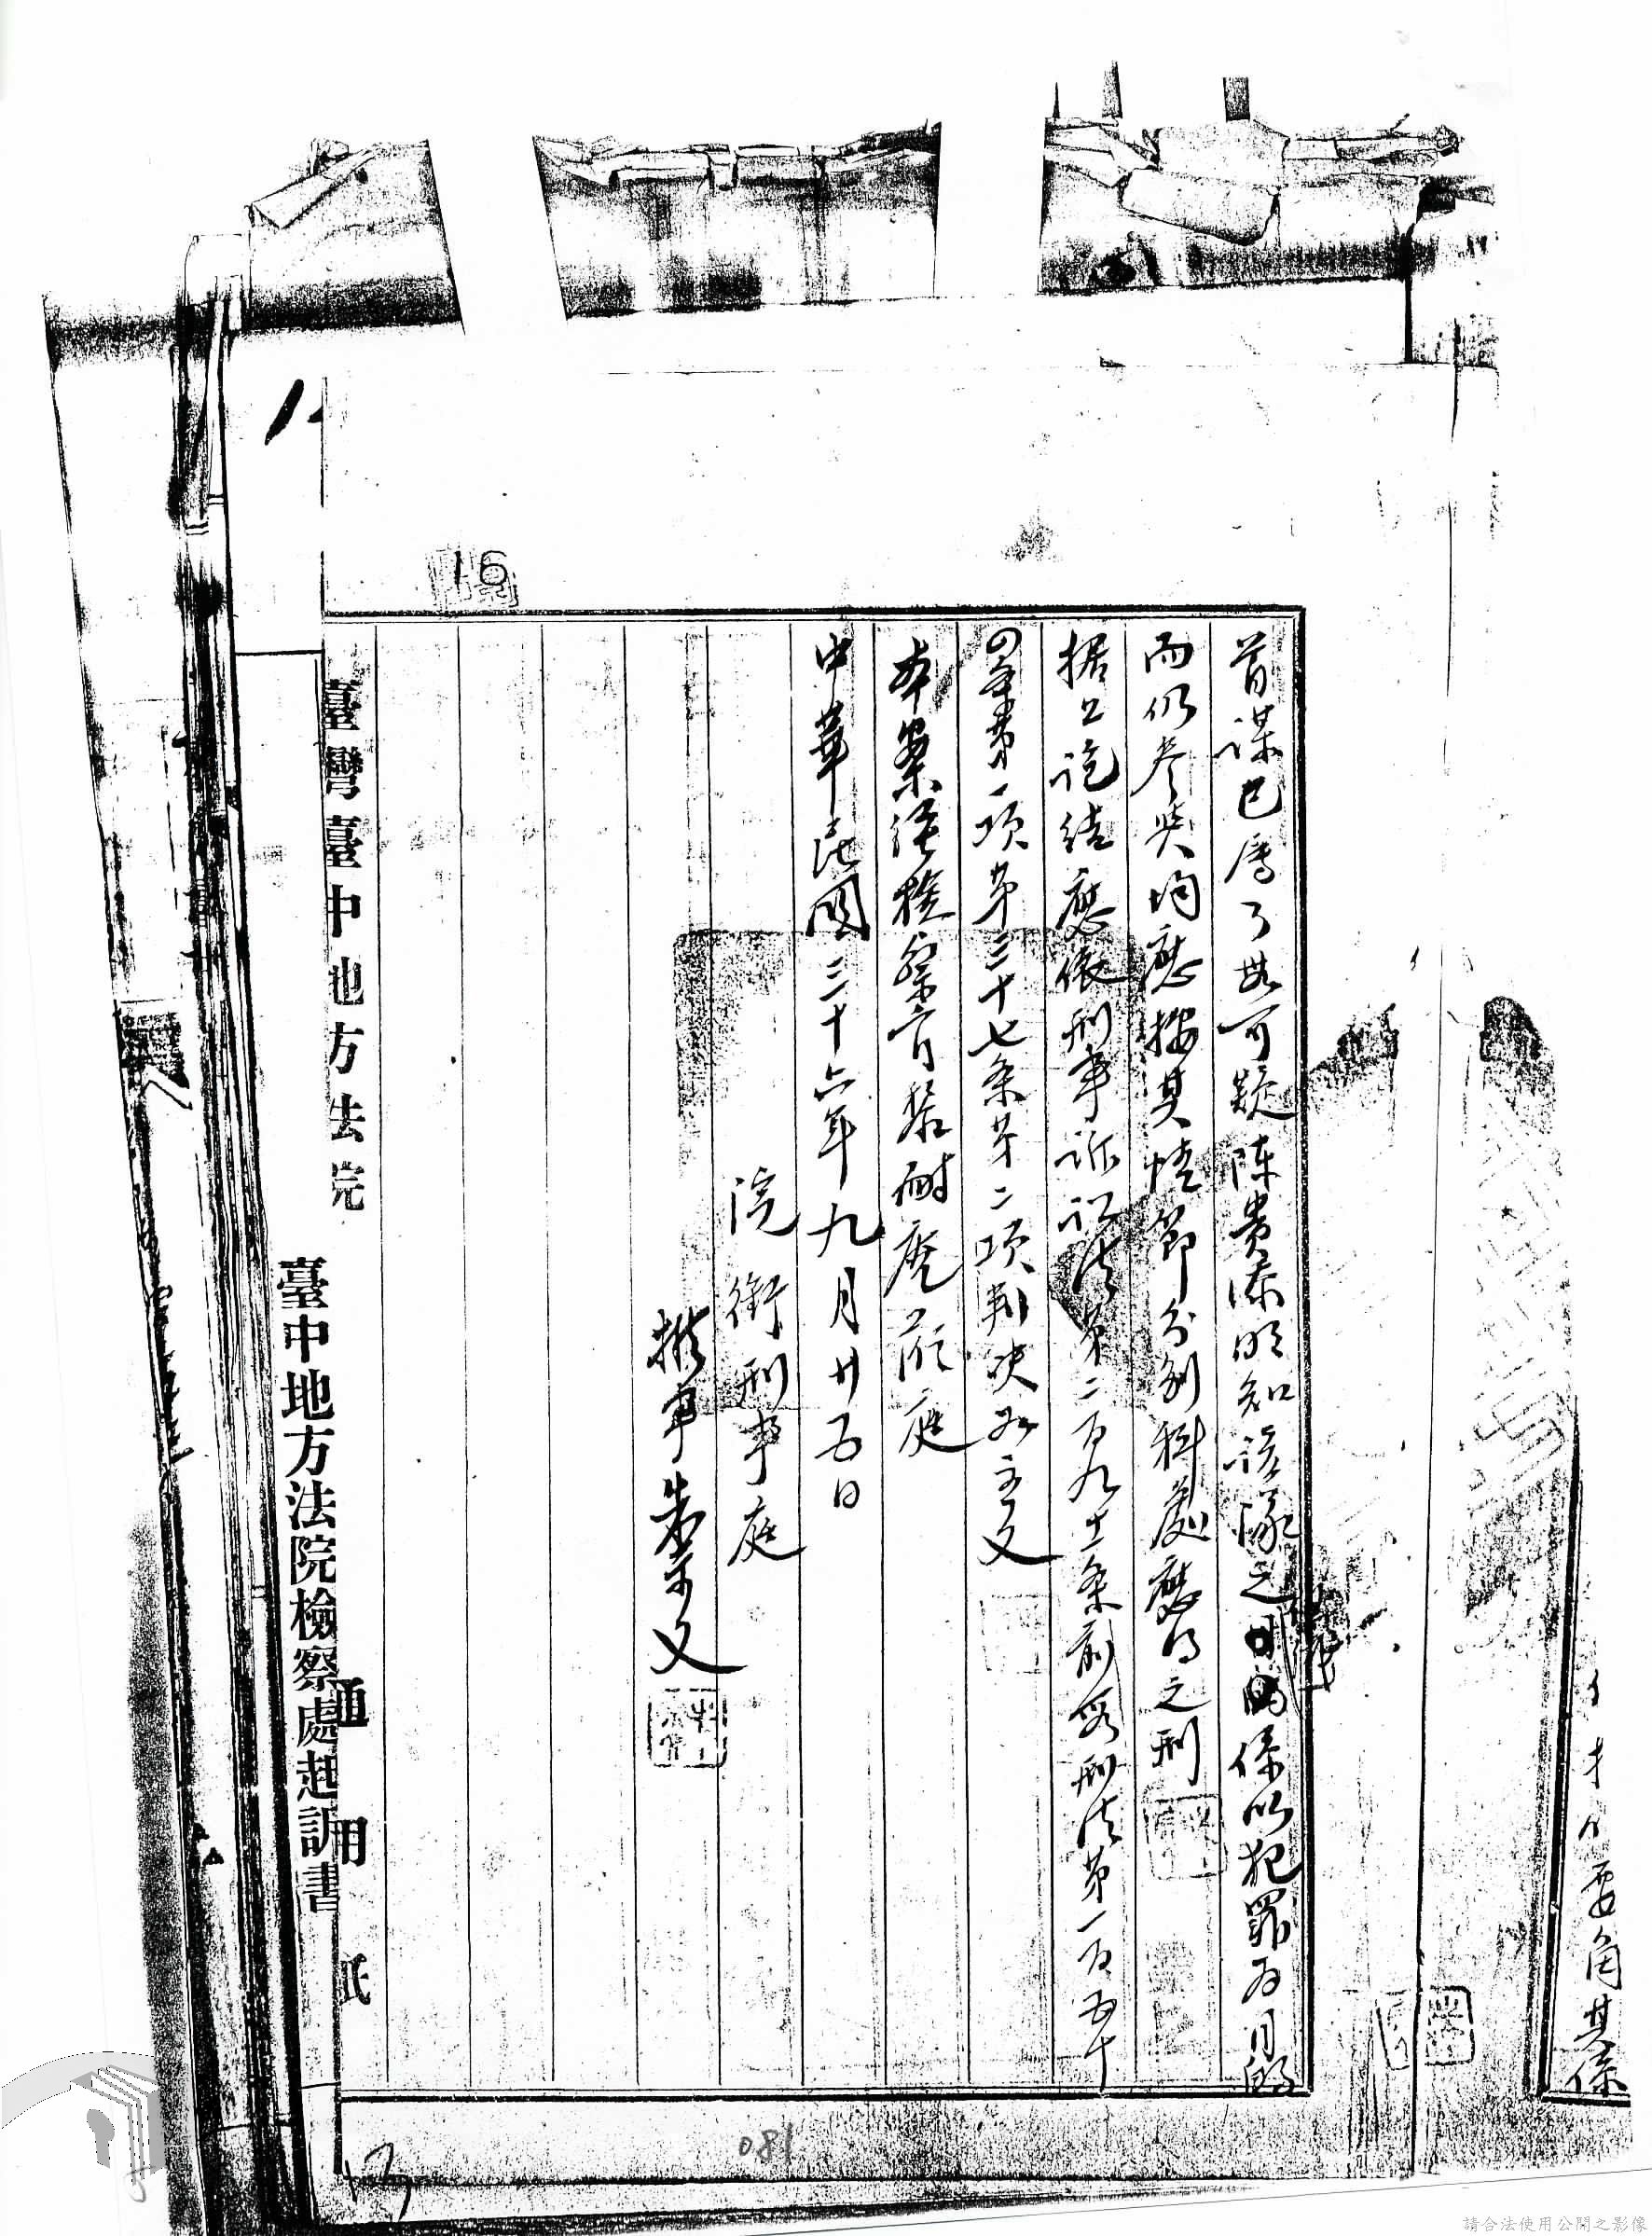 才 要角其係
首謀已属了無可疑陳貴添明知該隊之目的係以犯罪為目的
而仍參與均應按其情節分別科處應得之刑
据上論結應依刑事訴訟法第二百九十一条前段刑法第一百五十
四条第一項第三十七条第二項判決如主文
本案經檢察官 耐庵蒞庭
中華民國三十六年九月廿五日
院衔刑事庭
推事朱 文
臺灣臺中地方法院
通用紙
臺中地方法院檢察處起訴書
16
081
13
請合法使用公開之影像